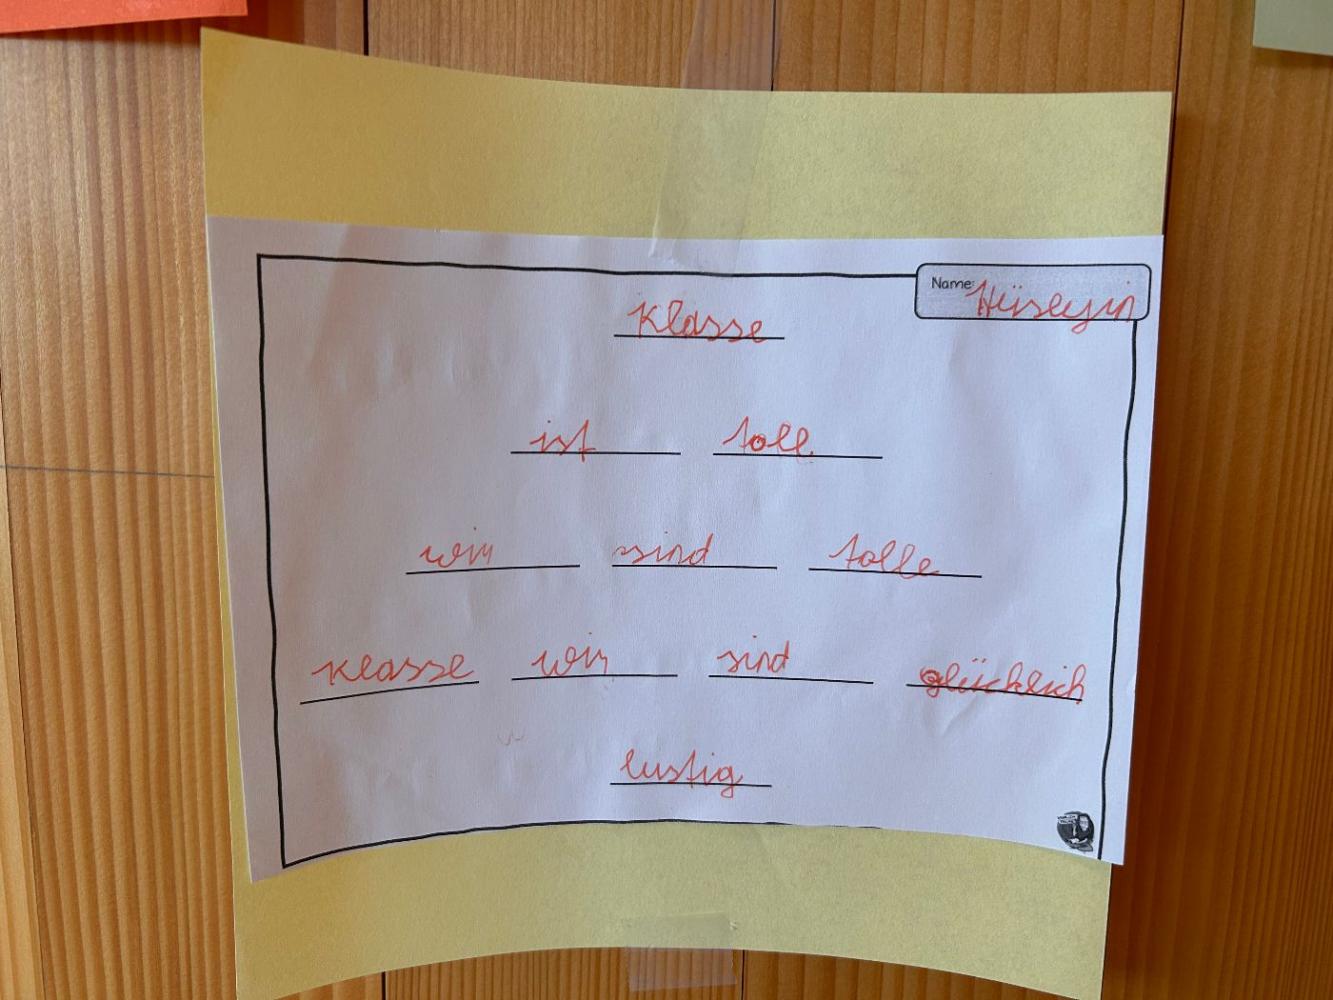 Name: Hüseyin
Klasse
ist toll
wir sind tolle
Klasse wir sind glücklich
lustig